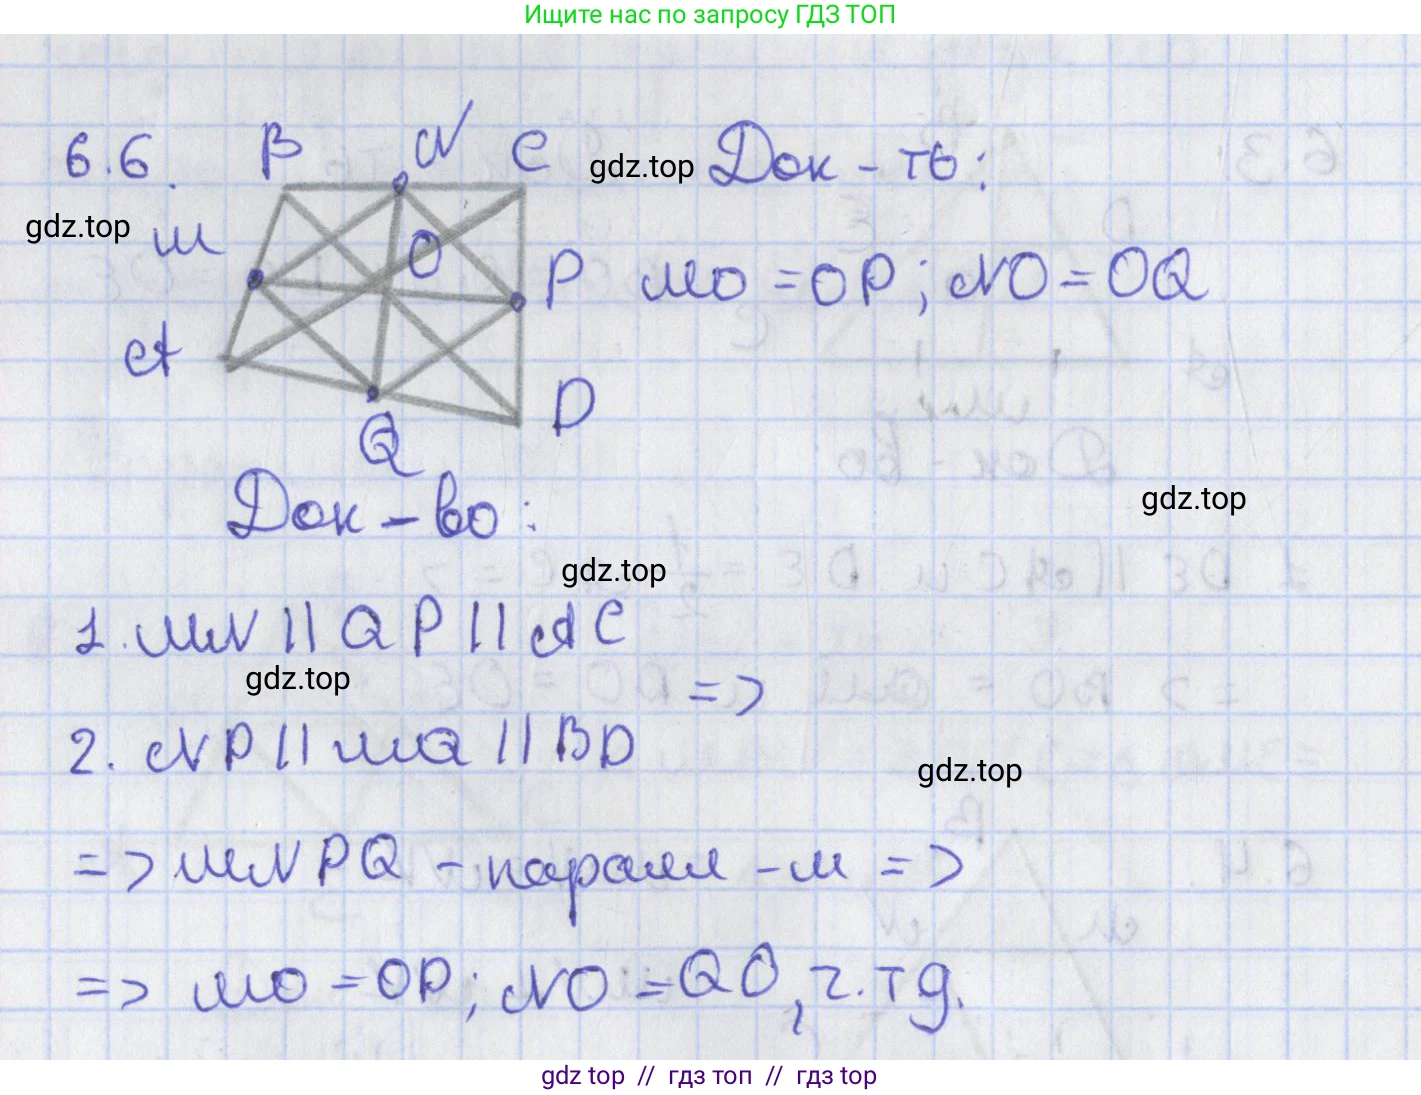 Ищите нас по запросу ГДЗ ТОП
6.6. B N C gdz.top Док-ть:
gdz.top M O P MO = OP; NO = OQ
A
Q D
Док-во: gdz.top
gdz.top
1. MN || QP || AC
gdz.top =>
2. NP || MQ || BD
gdz.top
=> MNPQ - паралл-м =>
=> MO = OP; NO = QO, ч.т.д.
gdz top // гдз топ // гдз top